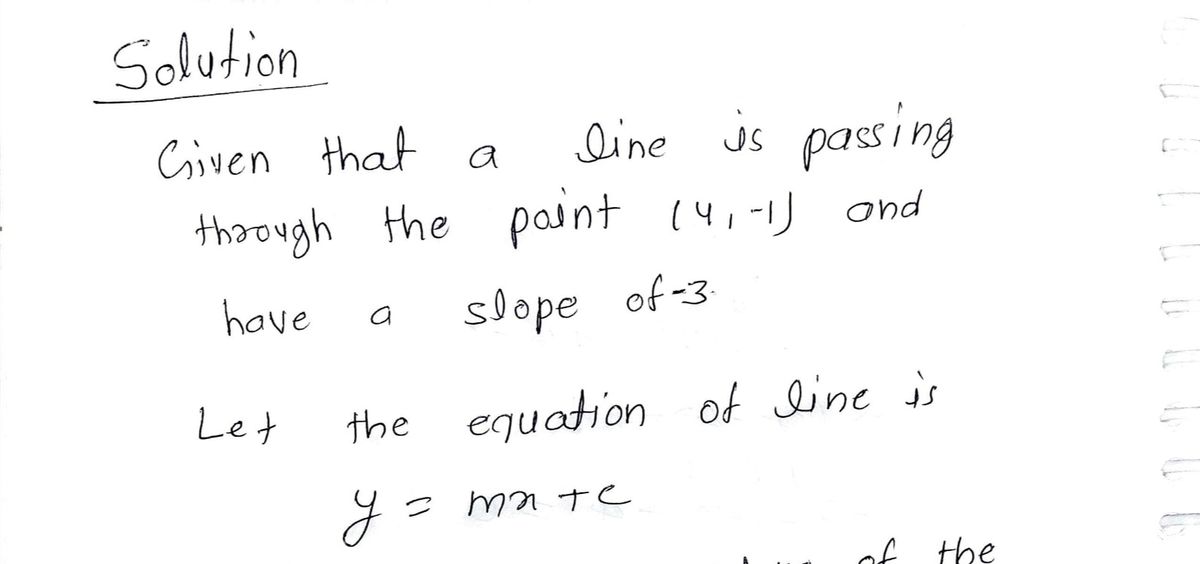 Solution
Given that a line is passing
through the point (4,-1) and
have a slope of -3.
Let the equation of line is
y = mx + c
of the